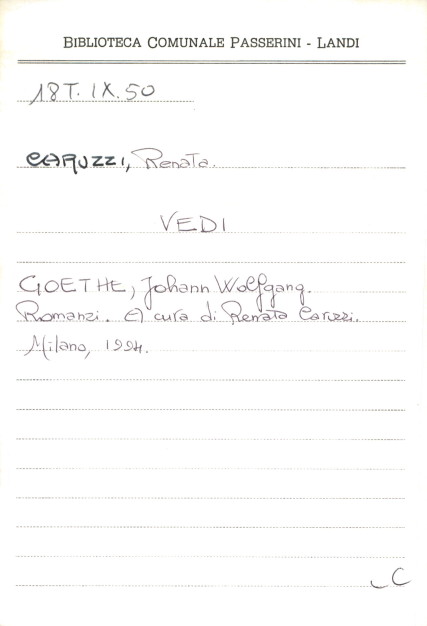 BIBLIOTECA COMUNALE PASSERINI - LANDI
18T. IX. 50
CARUZZI, Renata.
VEDI
GOETHE, Johann Wolfgang.
Romanzi. A cura di Renata Caruzzi.
Milano, 1994.
C